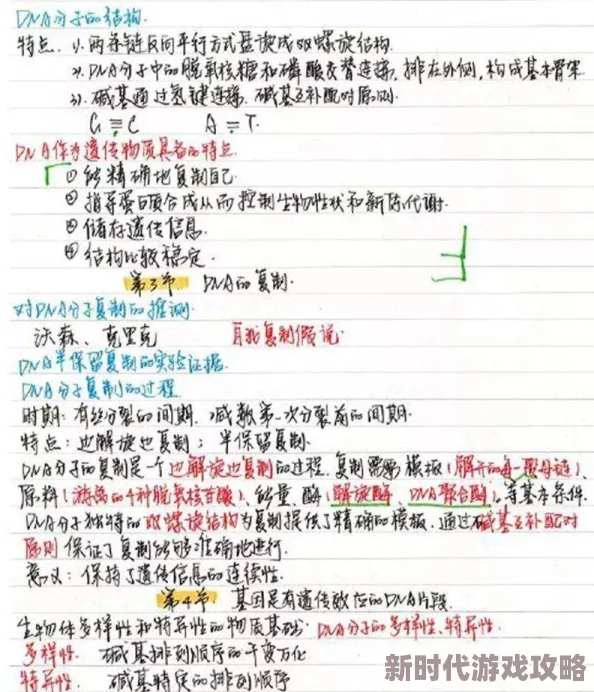 DNA分子的结构.
特点. 1). 两条链反向平行方式盘旋成双螺旋结构.
2). DNA分子中的脱氧核糖和磷酸交替连接, 排在外侧, 构成基本骨架.
3). 碱基通过氢键连接. 碱基互补配对原则.
G≡C A=T.
DNA作为遗传物质具备的特点.
① 能精确地复制自己.
② 指导蛋白质合成从而控制生物性状和新陈代谢.
③ 储存遗传信息.
④ 结构比较稳定.
第3节. DNA的复制.
对DNA分子复制的推测.
沃森、克里克 自我复制假说.
DNA半保留复制的实验证据.
DNA分子复制的过程
时期: 有丝分裂的间期. 减数第一次分裂前的间期.
特点: 边解旋边复制; 半保留复制.
DNA分子的复制是一个边解旋边复制的过程. 复制需要模板(解开的每一条母链).
原料(游离的4种脱氧核苷酸)、能量、酶(解旋酶、DNA聚合酶)等基本条件.
DNA分子独特的双螺旋结构为复制提供了精确的模板. 通过碱基互补配对
原则保证了复制能够准确地进行.
意义: 保持了遗传信息的连续性.
第4节. 基因是有遗传效应的DNA片段.
生物体多样性和特异性的物质基础: DNA分子的多样性、特异性.
多样性. 碱基排列顺序的千变万化
特异性. 碱基特定的排列顺序
新时代游戏攻略